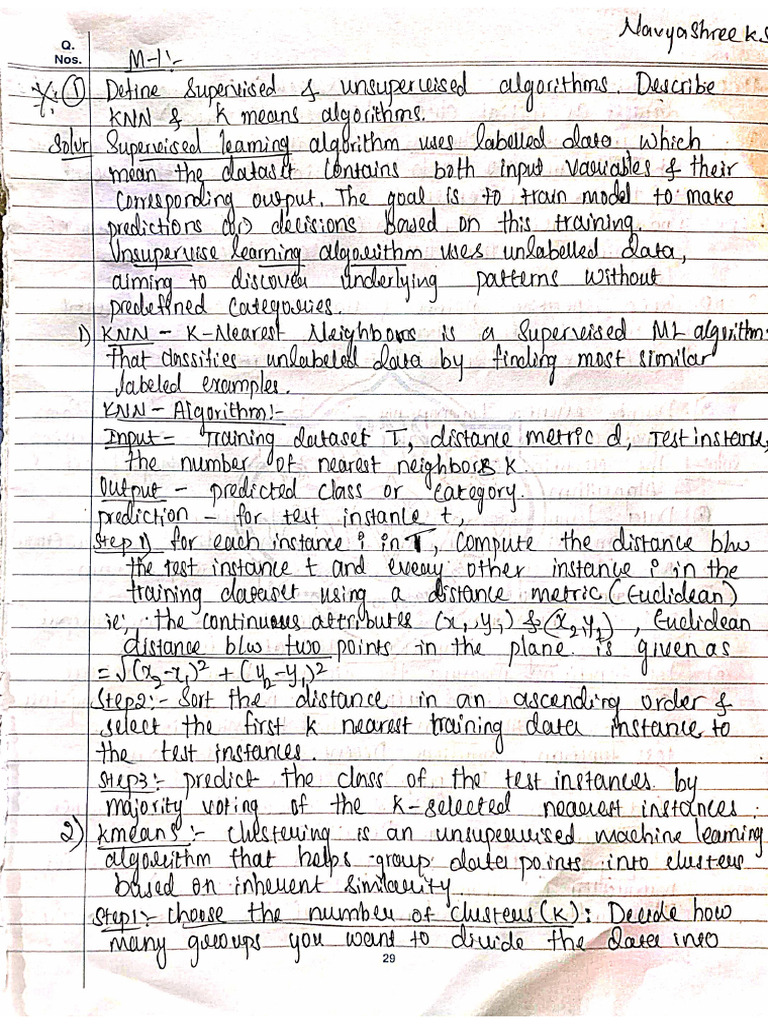 Navyashree K.S
Q.
Nos.
M-1:-
① Define Supervised & unsupervised algorithms. Describe
KNN & K means algorithms.
Soln: Supervised learning algorithm uses labelled data, which
mean the dataset contains both input variables & their
corresponding output. The goal is to train model to make
predictions (or) decisions based on this training.
Unsupervise learning algorithm uses unlabelled data,
aiming to discover underlying patterns without
predefined categories.
1) KNN - K-Nearest Neighbors is a Supervised ML algorithm
that classifies unlabeled data by finding most similar
labeled examples.
KNN - Algorithm:-
Input - Training dataset T, distance metric d, Test instance,
the number of nearest neighbors K.
Output - predicted class or category.
prediction - for test instance t,
Step 1) for each instance i in T, compute the distance b/w
the test instance t and every other instance i in the
training dataset using a distance metric (Euclidean)
ie; the continuous attributes (x₁, y₁) & (x₂, y₂), Euclidean
distance b/w two points in the plane is given as
= √(x₂-x₁)² + (y₂-y₁)²
Step2:- Sort the distance in an ascending order &
select the first k nearest training data instance to
the test instances.
Step3:- predict the class of the test instances by
majority voting of the K-selected nearest instances.
2) Kmeans :- Clustering is an unsupervised machine learning
algorithm that helps group data points into clusters
based on inherent similarity.
Step1:- Choose the number of clusters (K): Decide how
many groups you want to divide the data into
29